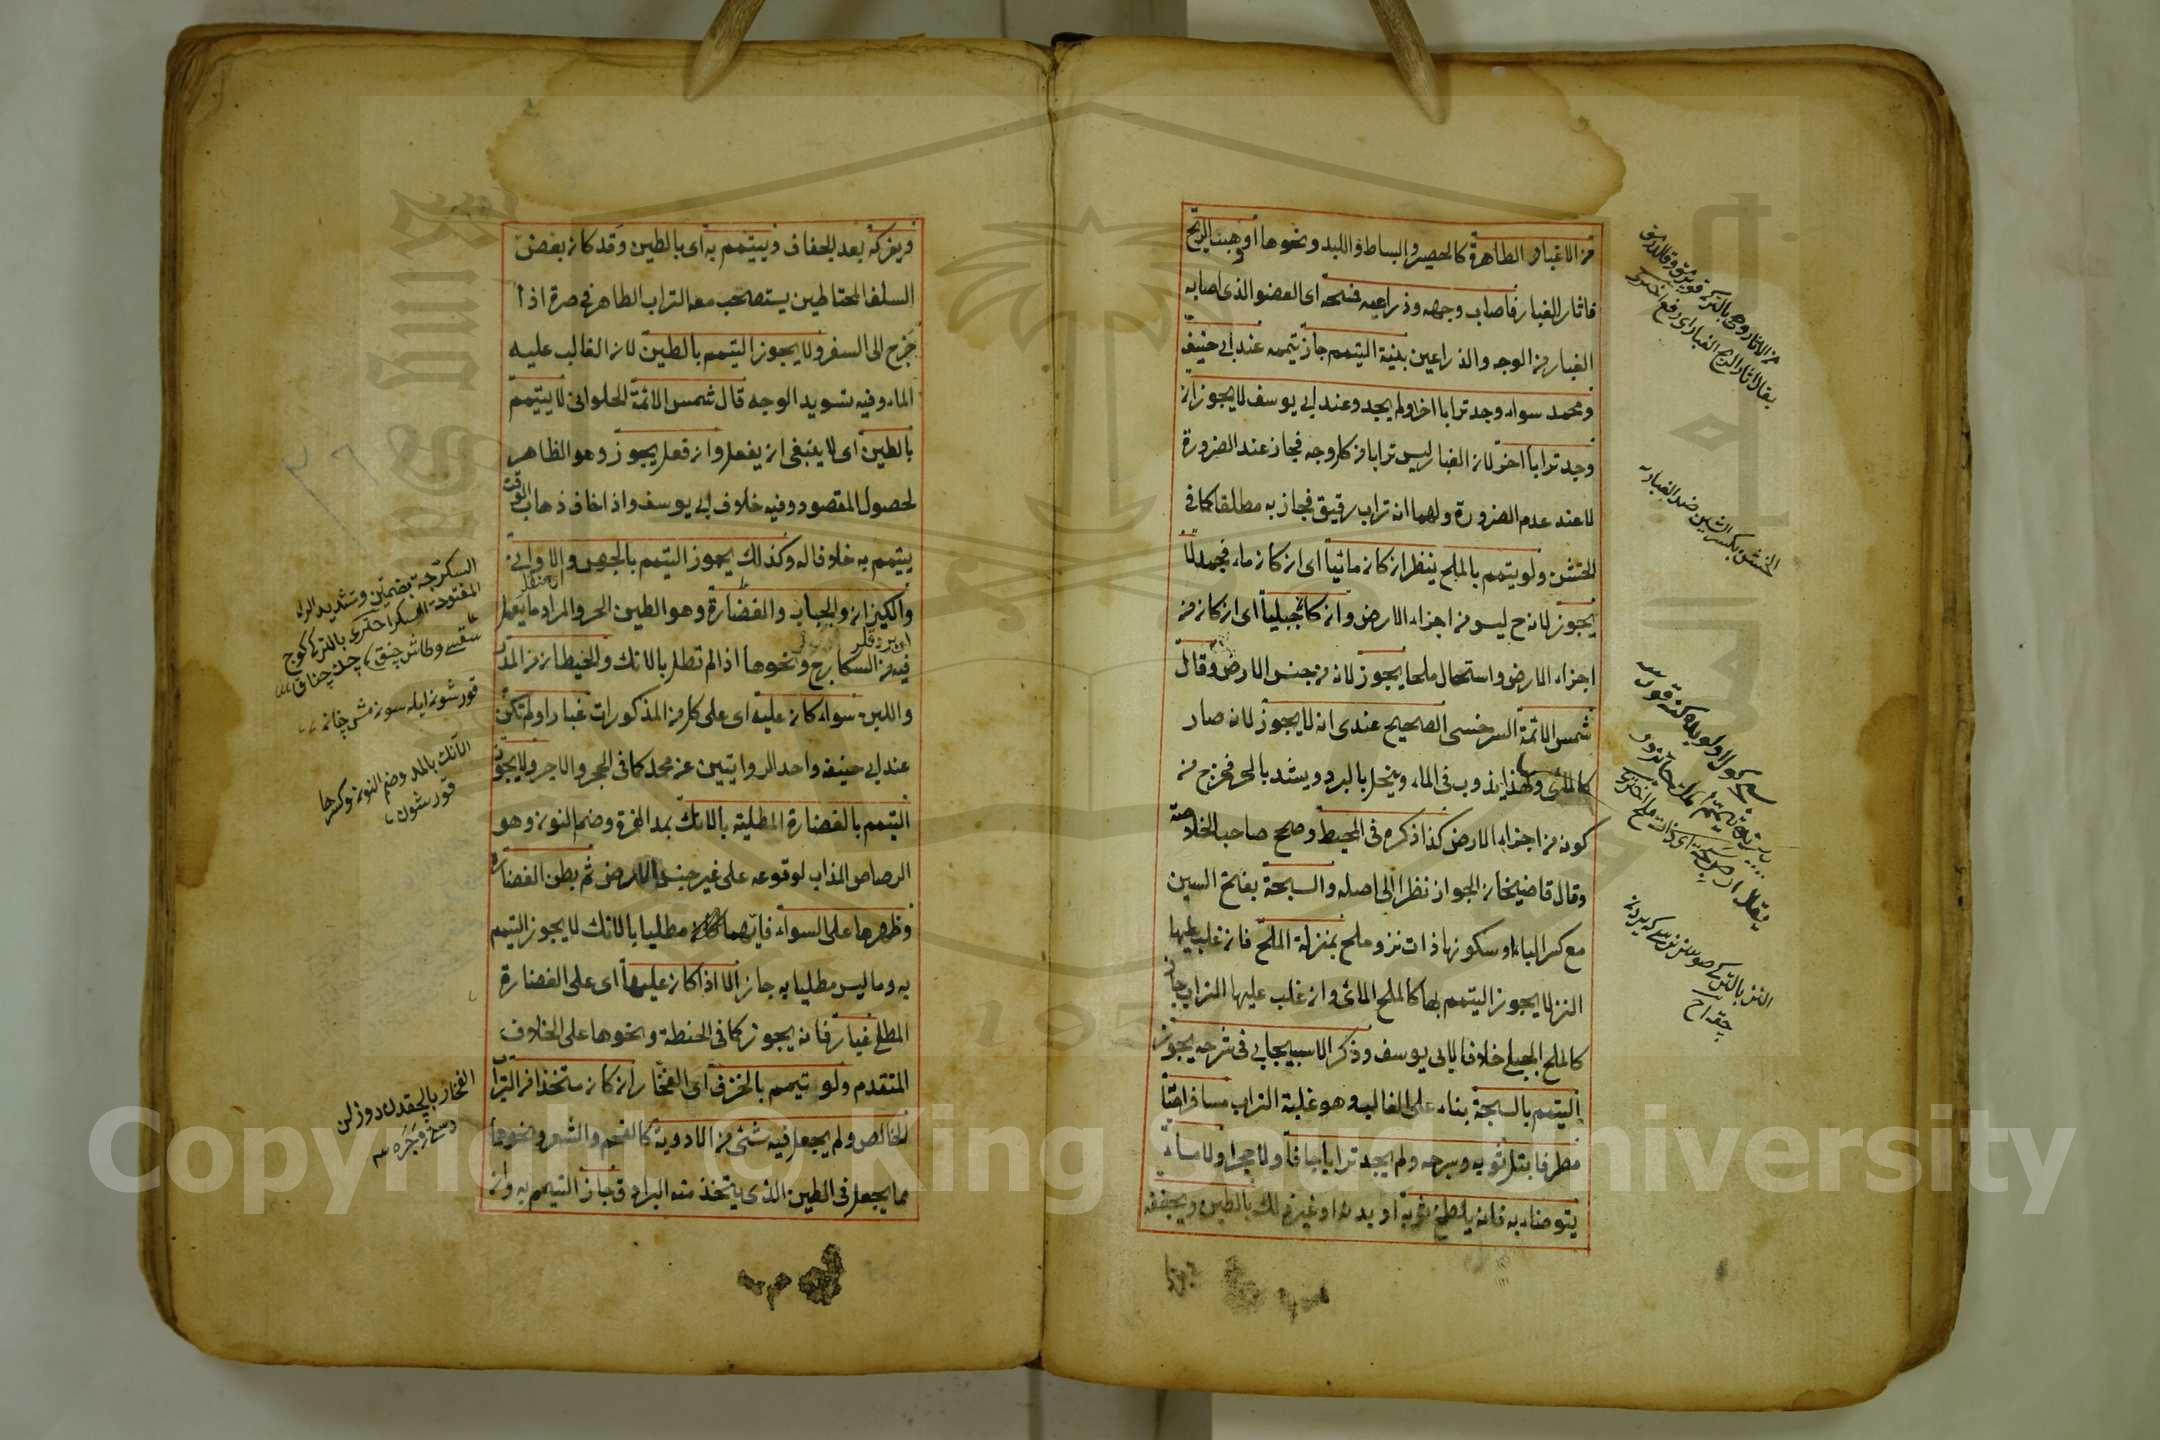 من الاعيان الطاهرة كالحصير والبساط واللبد ونحوها او هبت الريح
فاثار الغبار فاصاب وجهه وذراعيه فمسحه اى العضو الذى اصابه
الغبار من الوجه والذراعين بنية التيمم جاز تيممه عند ابى حنيفة
ومحمد سواء وجد ترابا اخر اولم يجد وعند ابى يوسف لا يجوز ان
وجد ترابا اخر لان الغبار ليس ترابا من كل وجه فجاز عند الضرورة
لا عند عدم الضرورة ولهما انه تراب رقيق فجاز به مطلقا كما فى
الخشن ولو تيمم بالملح ينظر ان كان مائيا اى ان كان ماء فجمد لا
يجوز لانه ح ليس من اجزاء الارض وان كان جبليا اى ان كان من
اجزاء الارض واستحال ملحا يجوز لانه من جنس الارض وقال
شمس الائمة السرخسى الصحيح عندى انه لا يجوز لانه صار
كالمائى ولهذا يذوب فى الماء وينحل بالبرد ويشتد بالحر فخرج من
كونه من اجزاء الارض كذا ذكره فى المحيط وصحح صاحب الخلاصة
وقال قاضيخان الجواز نظرا الى اصله والسبخة بفتح السين
مع كسر الباء او سكونها ذات نز وملح بمنزلة الملح فان غلب عليها
النز لا يجوز التيمم بها كالملح المائى وان غلب عليها التراب جاز
كالملح الجبلى خلافا لابى يوسف وذكر الاسبيجابى فى شرحه يجوز
التيمم بالسبخة بناء على الغالب وهو غلبة التراب مسافر اصابه
مطر فابتل ثوبه وسرجه ولم يجد ترابا جافا ولا حجرا ولا ماء
يتوضاء به فانه يلطخ ثوبه او بدنه او غير ذلك بالطين ويجففه
الخشن بكسر الشين ضد
ويفركه بعد الجفاف ويتيمم به اى بالطين وقد كان بعض
السلف المحتاطين يستصحب معه التراب الطاهر فى صرة اذا
خرج الى السفر ولا يجوز التيمم بالطين لان الغالب عليه
الماء وفيه تسويد الوجه قال شمس الائمة الحلوانى لا يتيمم
بالطين اى لا ينبغى ان يفعل وان فعل يجوز وهو الظاهر
لحصول المقصود وفيه خلاف ابى يوسف واذا خاف ذهاب الوقت
يتيمم به خلافا له وكذلك يجوز التيمم بالجص والاوانى
والكيزان والجباب والغضارة وهو الطين الحر والمراد ما يعمل
فيه من السكارج ونحوها اذا لم تطل بالآنك والحيطان من المدر
واللبن سواء كان عليه اى على كل من المذكورات غبار او لم تكن
عند ابى حنيفة واحد الروايتين عن محمد كما فى الحجر والآجر ولا يجوز
التيمم بالغضارة المطلية بالآنك بمد الهمزة وضم النون وهو
الرصاص المذاب لوقوعه على غير جنس الارض ثم بطن الغضارة
وظهرها على السواء فايهما كان مطليا بالآنك لا يجوز التيمم
به وما ليس مطليا به جاز الا اذا كان عليها اى على الغضارة
المطلى غبار فانه يجوز كما فى الحنطة ونحوها على الخلاف
المتقدم ولو تيمم بالخزف اى الفخار ان كان متخذا من التراب
الخالص ولم يجعل فيه شئ من الادوية كالفحم والشعر ونحوهما
مما يجعل فى الطين الذى يتخذ منه البرادق جاز التيمم به وان
السكرجة بضمتين وتشديد الراء
الآنك بالمد وضم النون
قورشون
Copyright © King Saud University
1957